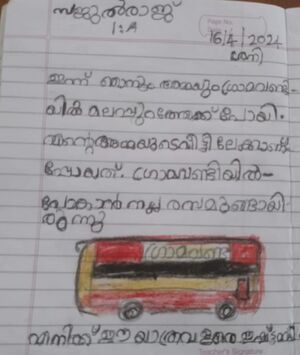 സജുൽരാജ്
1:A
Page No.
16/4/2024
ശനി
ഇന്ന് ഞാനും അമ്മയും ഗ്രാമവണ്ടി-
യിൽ മലപ്പുറത്തേക്ക് പോയി.
എന്റെ അമ്മയുടെ വീട്ടിലേക്കാണ്
പോയത്. ഗ്രാമവണ്ടിയിൽ-
പോകാൻ നല്ല രസമുണ്ടായി
രുന്നു
ഗ്രാമവണ്ടി
എനിക്ക് ഈ യാത്ര വളരെ ഇഷ്ടമായി
Teacher's Signature